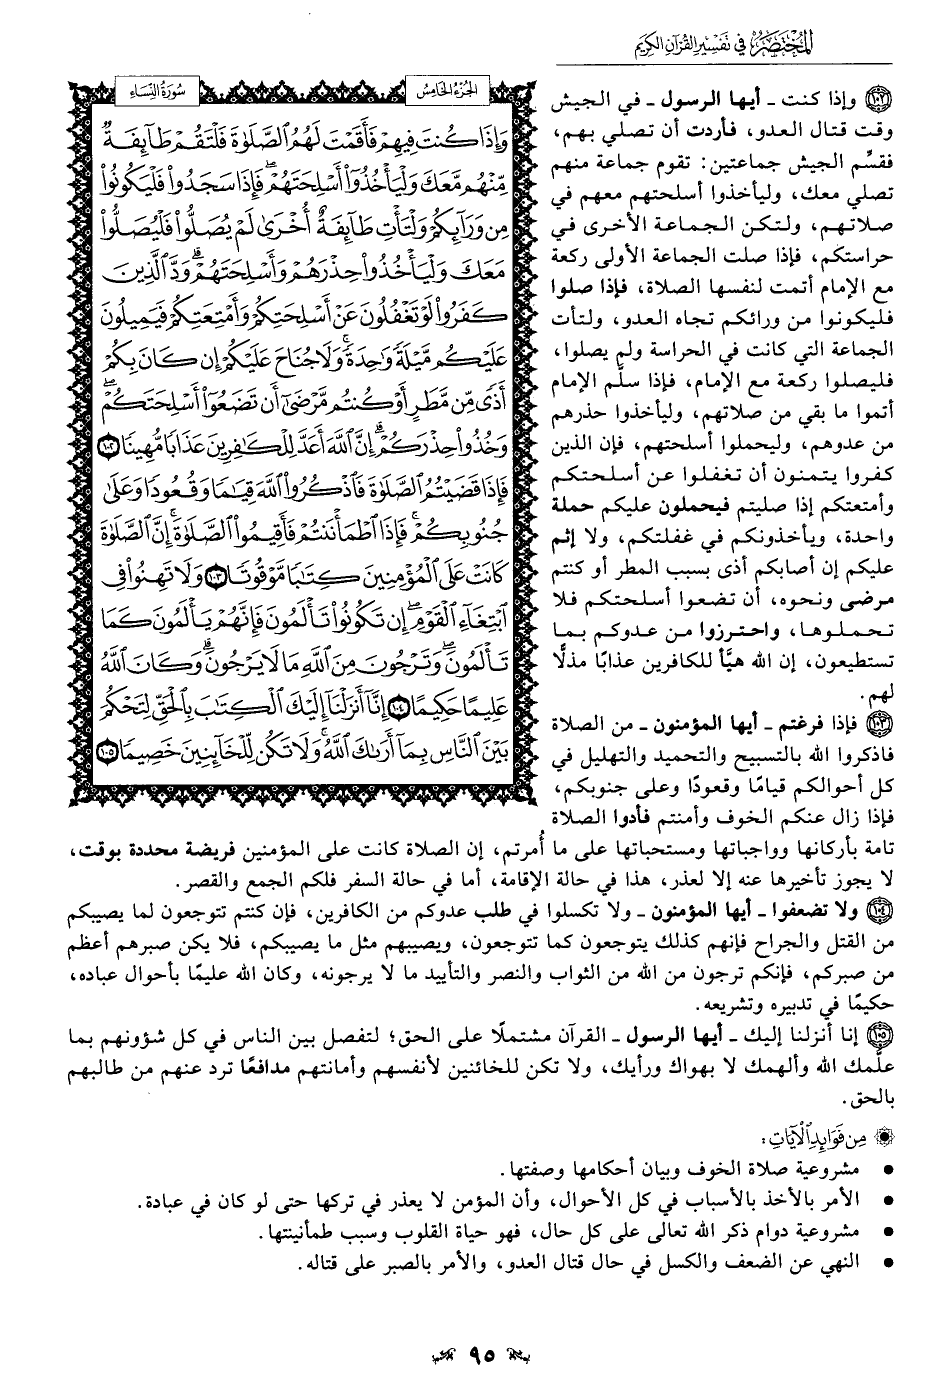 المختصر في تفسير القرآن الكريم
الجزء الخامس
سورة النساء
وَإِذَا كُنتَ فِيهِمْ فَأَقَمْتَ لَهُمُ ٱلصَّلَوٰةَ فَلْتَقُمْ طَآئِفَةٌ
مِّنْهُم مَّعَكَ وَلْيَأْخُذُوٓا۟ أَسْلِحَتَهُمْۖ فَإِذَا سَجَدُوا۟ فَلْيَكُونُوا۟
مِن وَرَآئِكُمْ وَلْتَأْتِ طَآئِفَةٌ أُخْرَىٰ لَمْ يُصَلُّوا۟ فَلْيُصَلُّوا۟
مَعَكَ وَلْيَأْخُذُوا۟ حِذْرَهُمْ وَأَسْلِحَتَهُمْۗ وَدَّ ٱلَّذِينَ
كَفَرُوا۟ لَوْ تَغْفُلُونَ عَنْ أَسْلِحَتِكُمْ وَأَمْتِعَتِكُمْ فَيَمِيلُونَ
عَلَيْكُم مَّيْلَةً وَٰحِدَةًۚ وَلَا جُنَاحَ عَلَيْكُمْ إِن كَانَ بِكُمْ
أَذًى مِّن مَّطَرٍ أَوْ كُنتُم مَّرْضَىٰٓ أَن تَضَعُوٓا۟ أَسْلِحَتَكُمْۖ
وَخُذُوا۟ حِذْرَكُمْۗ إِنَّ ٱللَّهَ أَعَدَّ لِلْكَٰفِرِينَ عَذَابًا مُّهِينًا ١٠٢
فَإِذَا قَضَيْتُمُ ٱلصَّلَوٰةَ فَٱذْكُرُوا۟ ٱللَّهَ قِيَٰمًا وَقُعُودًا وَعَلَىٰ
جُنُوبِكُمْۚ فَإِذَا ٱطْمَأْنَنتُمْ فَأَقِيمُوا۟ ٱلصَّلَوٰةَۚ إِنَّ ٱلصَّلَوٰةَ
كَانَتْ عَلَى ٱلْمُؤْمِنِينَ كِتَٰبًا مَّوْقُوتًا ١٠٣ وَلَا تَهِنُوا۟ فِى
ٱبْتِغَآءِ ٱلْقَوْمِۖ إِن تَكُونُوا۟ تَأْلَمُونَ فَإِنَّهُمْ يَأْلَمُونَ كَمَا
تَأْلَمُونَۖ وَتَرْجُونَ مِنَ ٱللَّهِ مَا لَا يَرْجُونَۗ وَكَانَ ٱللَّهُ
عَلِيمًا حَكِيمًا ١٠٤ إِنَّآ أَنزَلْنَآ إِلَيْكَ ٱلْكِتَٰبَ بِٱلْحَقِّ لِتَحْكُمَ
بَيْنَ ٱلنَّاسِ بِمَآ أَرَىٰكَ ٱللَّهُۚ وَلَا تَكُن لِّلْخَآئِنِينَ خَصِيمًا ١٠٥
١٠٢ وإذا كنت ـ أيها الرسول ـ في الجيش
وقت قتال العدو، فأردت أن تصلي بهم،
فقسِّم الجيش جماعتين: تقوم جماعة منهم
تصلي معك، وليأخذوا أسلحتهم معهم في
صلاتهم، ولتكن الجماعة الأخرى في
حراستكم، فإذا صلت الجماعة الأولى ركعة
مع الإمام أتمت لنفسها الصلاة، فإذا صلوا
فليكونوا من ورائكم تجاه العدو، ولتأت
الجماعة التي كانت في الحراسة ولم يصلوا،
فليصلوا ركعة مع الإمام، فإذا سلَّم الإمام
أتموا ما بقي من صلاتهم، وليأخذوا حذرهم
من عدوهم، وليحملوا أسلحتهم، فإن الذين
كفروا يتمنون أن تغفلوا عن أسلحتكم
وأمتعتكم إذا صليتم فيحملون عليكم حملة
واحدة، ويأخذونكم في غفلتكم، ولا إثم
عليكم إن أصابكم أذى بسبب المطر أو كنتم
مرضى ونحوه، أن تضعوا أسلحتكم فلا
تحملوها، واحترزوا من عدوكم بما
تستطيعون، إن الله هيَّأ للكافرين عذابًا مذلًّا
لهم.
١٠٣ فإذا فرغتم ـ أيها المؤمنون ـ من الصلاة
فاذكروا الله بالتسبيح والتحميد والتهليل في
كل أحوالكم قيامًا وقعودًا وعلى جنوبكم،
فإذا زال عنكم الخوف وأمنتم فأدوا الصلاة
تامة بأركانها وواجباتها ومستحباتها على ما أُمرتم، إن الصلاة كانت على المؤمنين فريضة محددة بوقت،
لا يجوز تأخيرها عنه إلا لعذر، هذا في حالة الإقامة، أما في حالة السفر فلكم الجمع والقصر.
١٠٤ ولا تضعفوا ـ أيها المؤمنون ـ ولا تكسلوا في طلب عدوكم من الكافرين، فإن كنتم تتوجعون لما يصيبكم
من القتل والجراح فإنهم كذلك يتوجعون كما تتوجعون، ويصيبهم مثل ما يصيبكم، فلا يكن صبرهم أعظم
من صبركم، فإنكم ترجون من الله من الثواب والنصر والتأييد ما لا يرجونه، وكان الله عليمًا بأحوال عباده،
حكيمًا في تدبيره وتشريعه.
١٠٥ إنا أنزلنا إليك ـ أيها الرسول ـ القرآن مشتملًا على الحق؛ لتفصل بين الناس في كل شؤونهم بما
علَّمك الله وألهمك لا بهواك ورأيك، ولا تكن للخائنين لأنفسهم وأمانتهم مدافعًا ترد عنهم من طالبهم
بالحق.
من فوائد الآيات:
• مشروعية صلاة الخوف وبيان أحكامها وصفتها.
• الأمر بالأخذ بالأسباب في كل الأحوال، وأن المؤمن لا يعذر في تركها حتى لو كان في عبادة.
• مشروعية دوام ذكر الله تعالى على كل حال، فهو حياة القلوب وسبب طمأنينتها.
• النهي عن الضعف والكسل في حال قتال العدو، والأمر بالصبر على قتاله.
٩٥